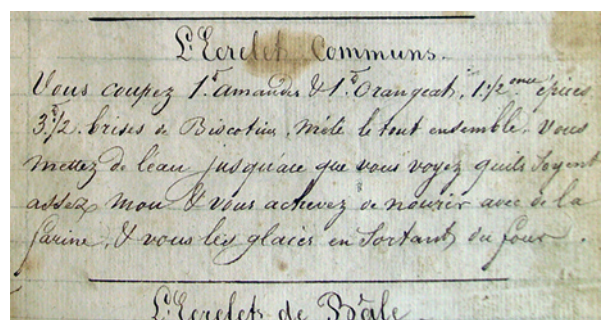 L'Ecrelets Communs.
Vous coupez 1.℔ amandes & 1.℔ Orangeat, 1 1/2 once épices
3.℔/2. brises de Biscotins, mélé le tout ensemble. Vous
mettez de l'eau jusqu'ace que vous voyez quils soyent
assez mou & vous achevez de nourir avec de la
farine, & vous les glacés en Sortant du four.
L'Ecrelets de Bâle